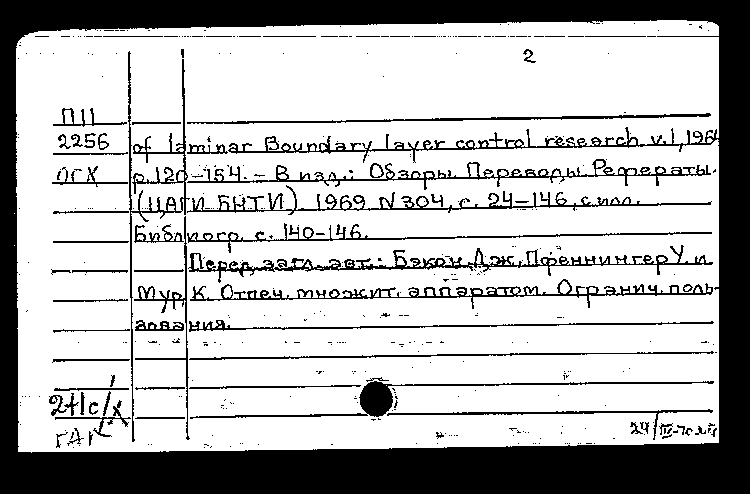 2
П11
2256 of laminar Boundary layer control research. v.1, 1964
ОГХ p. 120-154. - В изд.: Обзоры. Переводы. Рефераты.
(ЦАГИ. БНТИ). 1969 N 304, с. 24-146, с илл.
Библиогр. с. 140-146.
Перед загл. авт.: Бэкон Дж., Пфеннингер У. и
Мур, К. Отпеч. множит. аппаратом. Огранич. поль-
зования.
24/III-70